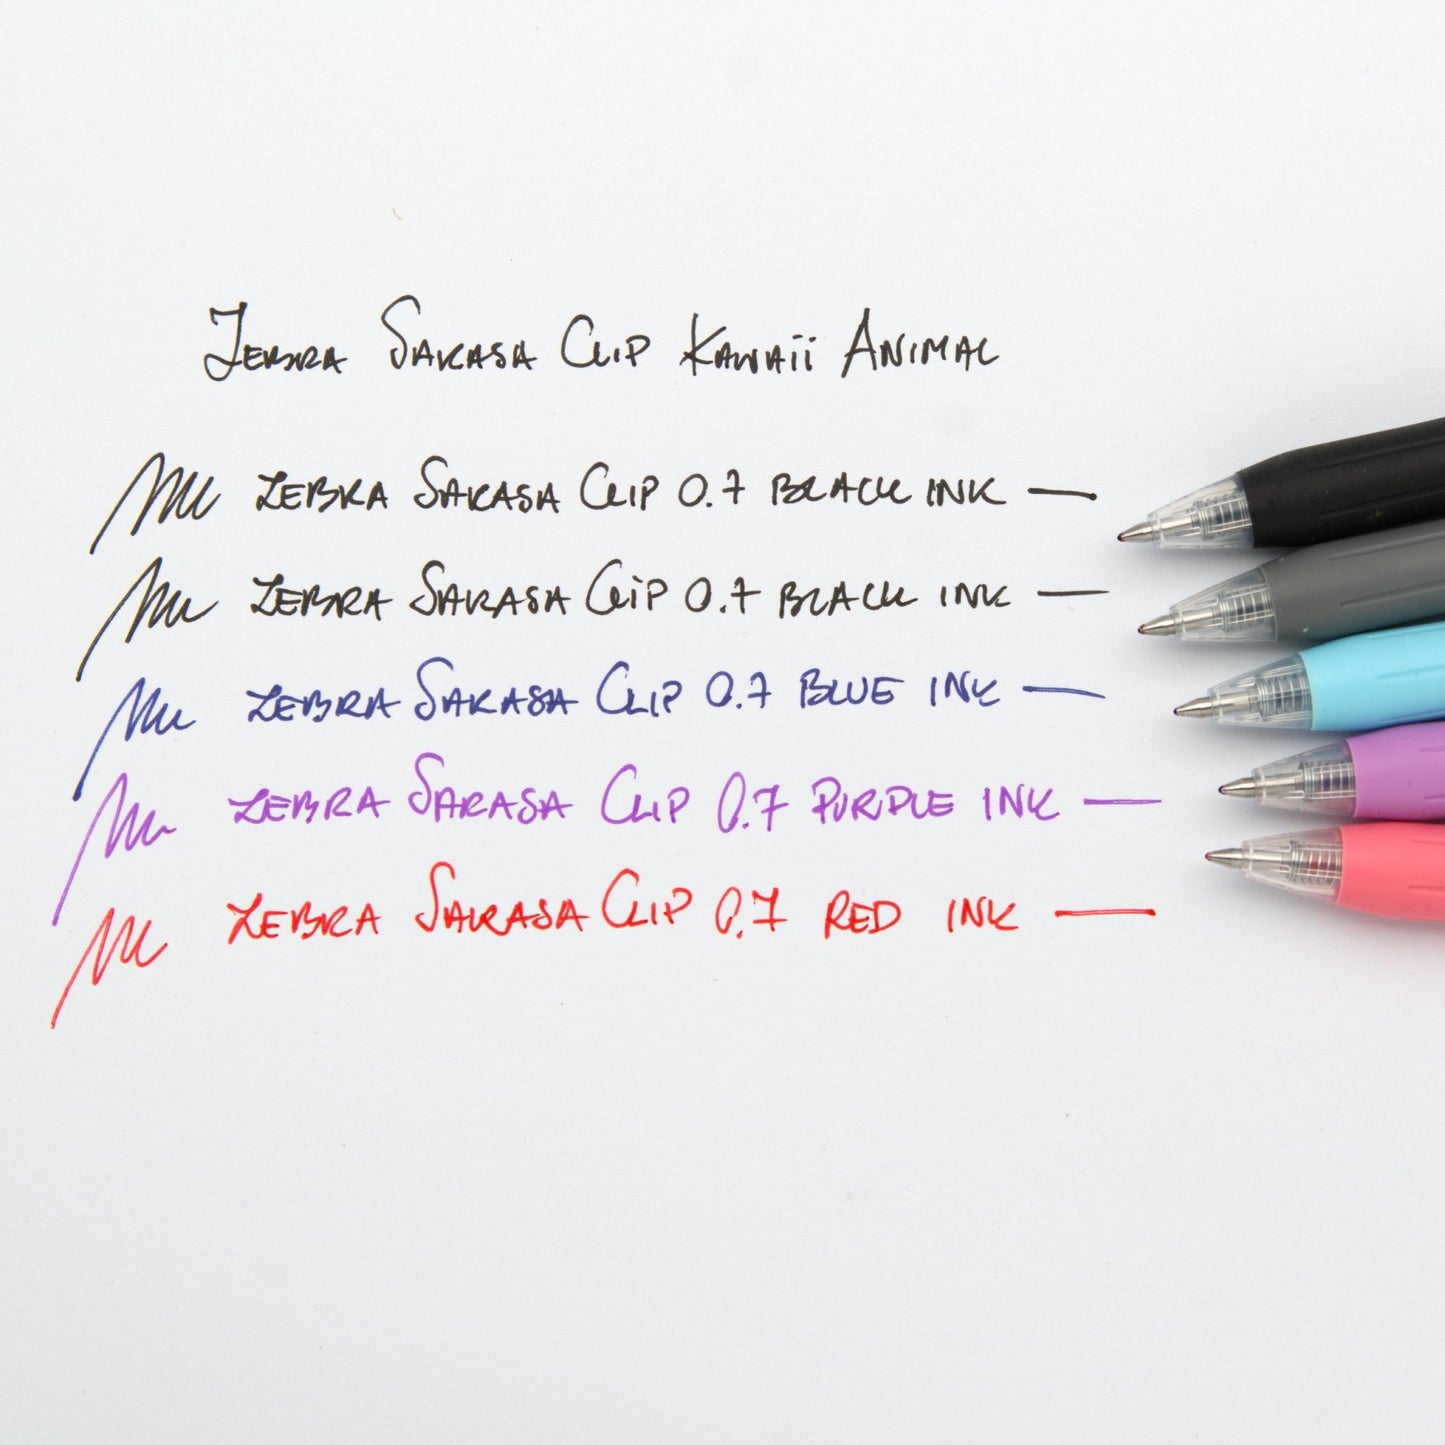 Zebra Sakasa Clip Kawaii Animal
Zebra Sakasa Clip 0.7 Black Ink
Zebra Sakasa Clip 0.7 Black Ink
Zebra Sakasa Clip 0.7 Blue Ink
Zebra Sarasa Clip 0.7 Purple Ink
Zebra Sakasa Clip 0.7 Red Ink